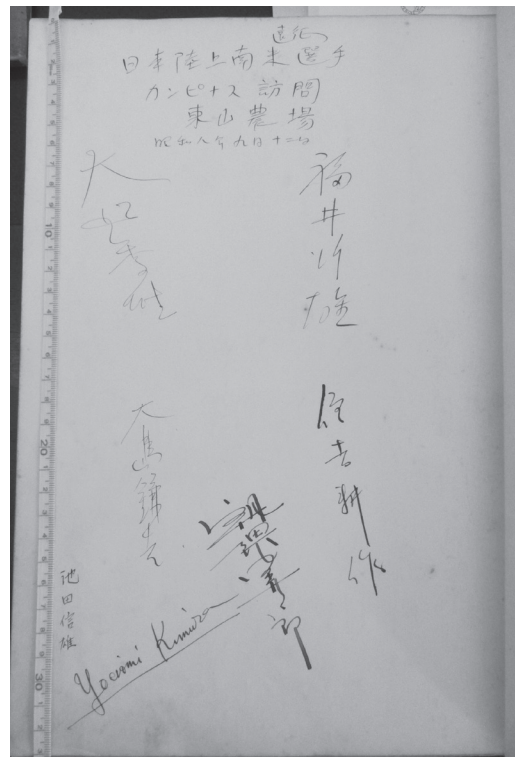 遠征
日本陸上南米選手
カンピナス訪問
東山農場
昭和八年九月十二日
福井行雄
住吉耕作
大島鎌吉
池田信雄
Yociomi Kimura
10
20
30